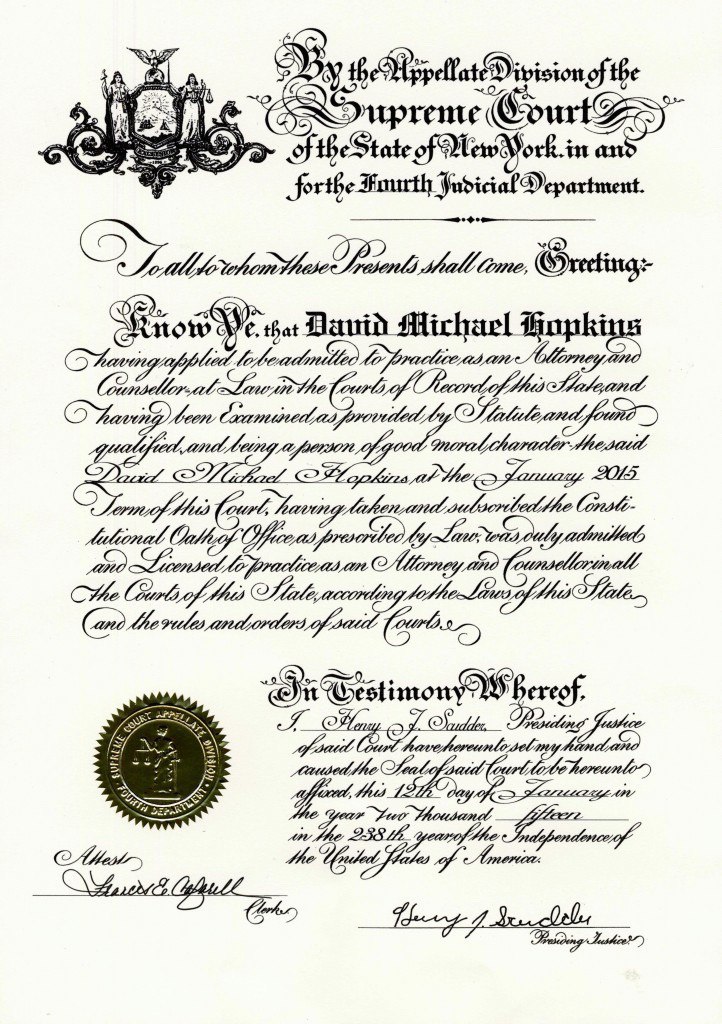 By the Appellate Division of the
Supreme Court
of the State of New York, in and
for the Fourth Judicial Department.
To all to whom these Presents shall come, Greeting:-
Know Ye, that David Michael Hopkins
having applied to be admitted to practice as an Attorney and
Counsellor-at Law, in the Courts of Record of this State, and
having been Examined, as provided by Statute, and found
qualified, and being a person of good moral character-the said
David Michael Hopkins at the January 2015
Term of this Court, having taken and subscribed the Consti-
tutional Oath of Office, as prescribed by Law, was duly admitted
and Licensed to practice as an Attorney and Counsellor in all
the Courts of this State, according to the Laws of this State,
and the rules and orders of said Courts.
In Testimony Whereof,
I, Henry J. Scudder, Presiding Justice
of said Court have hereunto set my hand and
caused the Seal of said Court to be hereunto
affixed, this 12th day of January in
the year two thousand fifteen
in the 238th year of the Independence of
the United States of America.
SUPREME COURT APPELLATE DIVISION
FOURTH DEPARTMENT
Attest
Frances E. Cafarell
Clerk
Henry J. Scudder
Presiding Justice